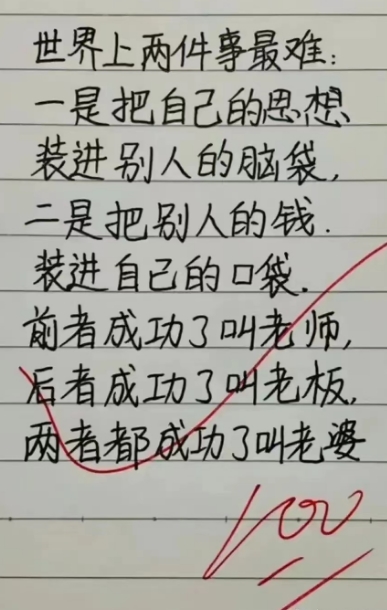 世界上两件事最难：
一是把自己的思想
装进别人的脑袋，
二是把别人的钱.
装进自己的口袋.
前者成功了叫老师，
后者成功了叫老板，
两者都成功了叫老婆
100